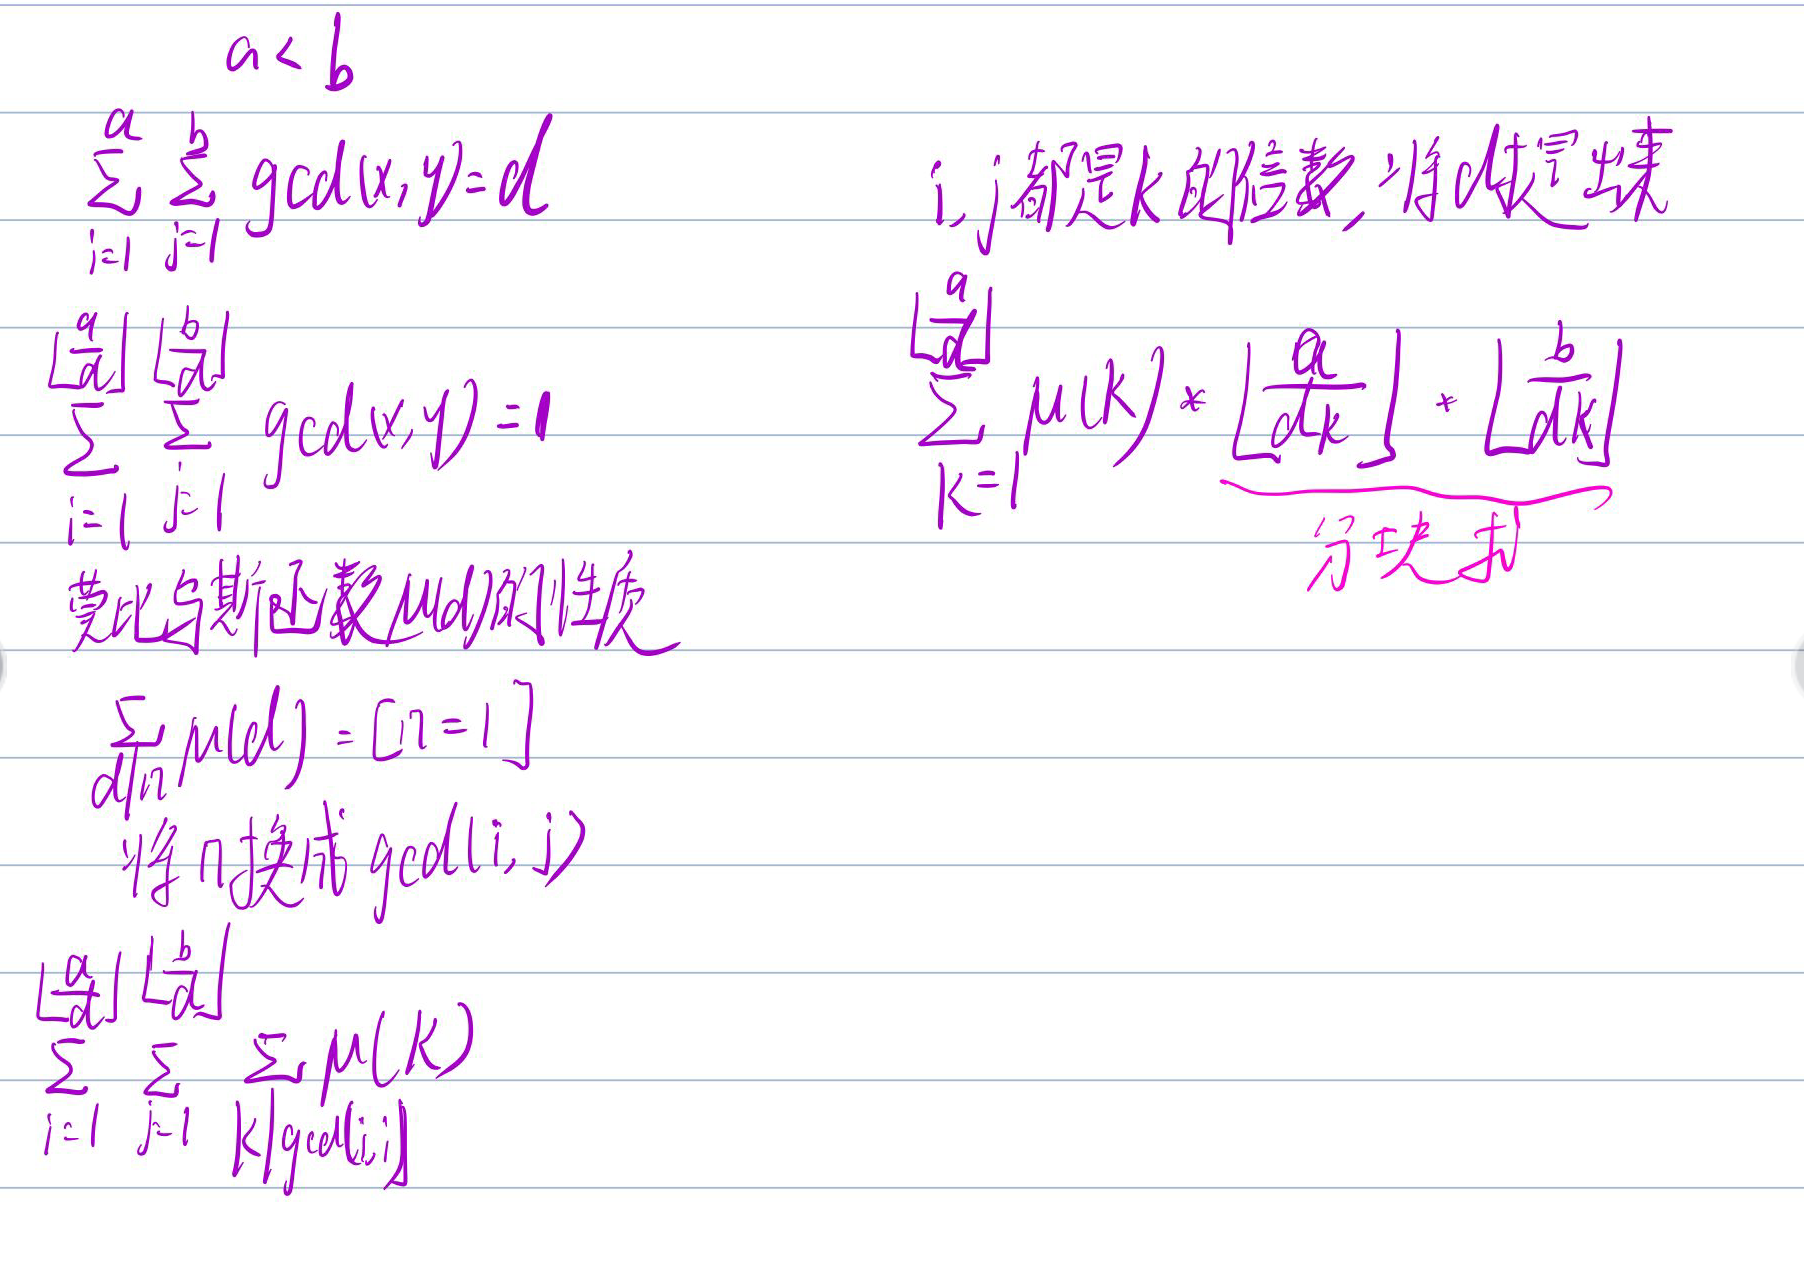 a < b
∑_{i=1}^{a} ∑_{j=1}^{b} gcd(x,y)=d
∑_{i=1}^{⌊a/d⌋} ∑_{j=1}^{⌊b/d⌋} gcd(x,y)=1
莫比乌斯函数μ(d)的性质
∑_{d|n} μ(d) = [n=1]
将n换成gcd(i,j)
∑_{i=1}^{⌊a/d⌋} ∑_{j=1}^{⌊b/d⌋} ∑_{k|gcd(i,j)} μ(k)
i,j都是k的倍数,将d提出来
∑_{k=1}^{⌊a/d⌋} μ(k) * ⌊a/dk⌋ * ⌊b/dk⌋
分块求